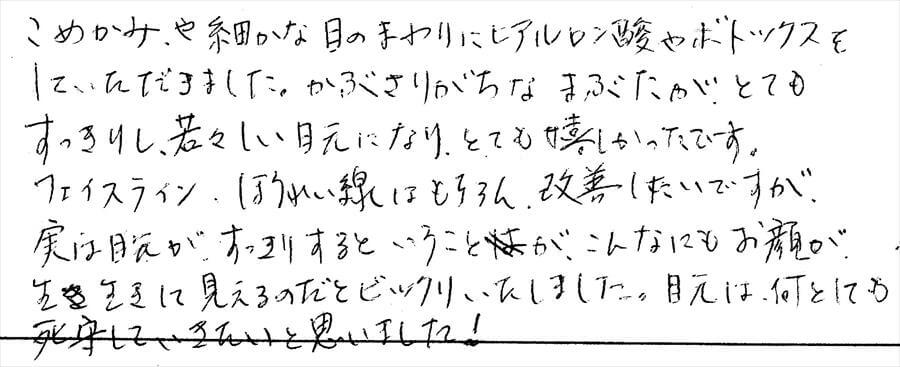 こめかみ、や細かな目のまわりにヒアルロン酸やボトックスを
していただきました。かぶさりがちなまぶたが、とても
すっきりし、若々しい目元になり、とても嬉しかったです。
フェイスライン、ほうれい線はもちろん、改善したいですが、
実は目元が、すっきりするということが、こんなにもお顔が、
生き生きして見えるのだとビックリいたしました。目元は、何としても
死守していきたいと思いました!